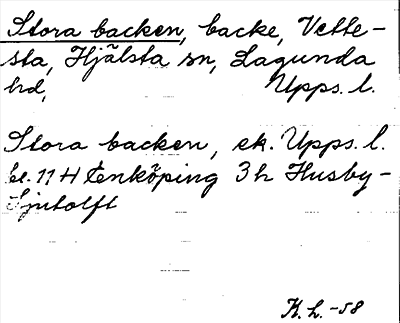 Stora backen, backe, Vette-
sta, Hjälsta sn, Lagunda
hd, Upps. l.
Stora backen, ek. Upps. l.
bl. 11 H Enköping 3 h Husby-
Sjutolft
K. L. -58